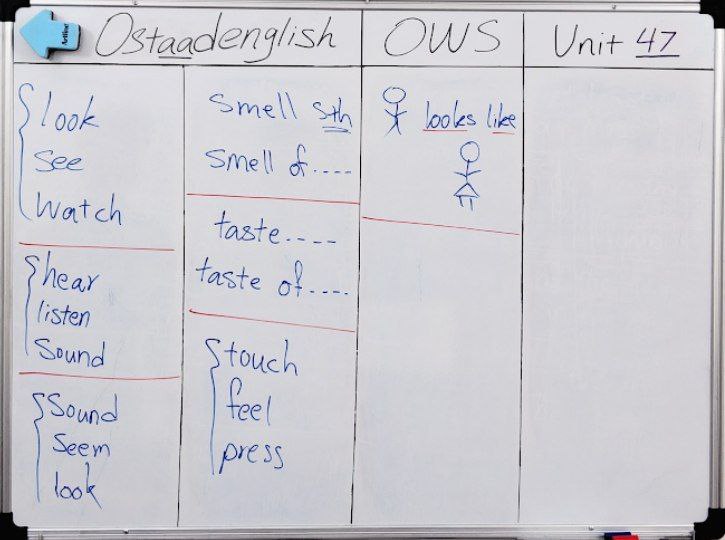 Artline
Ostaadenglish
OWS
Unit 47
look
see
Watch
hear
listen
Sound
Sound
Seem
look
Smell sth
Smell of....
taste....
taste of....
touch
feel
press
looks like